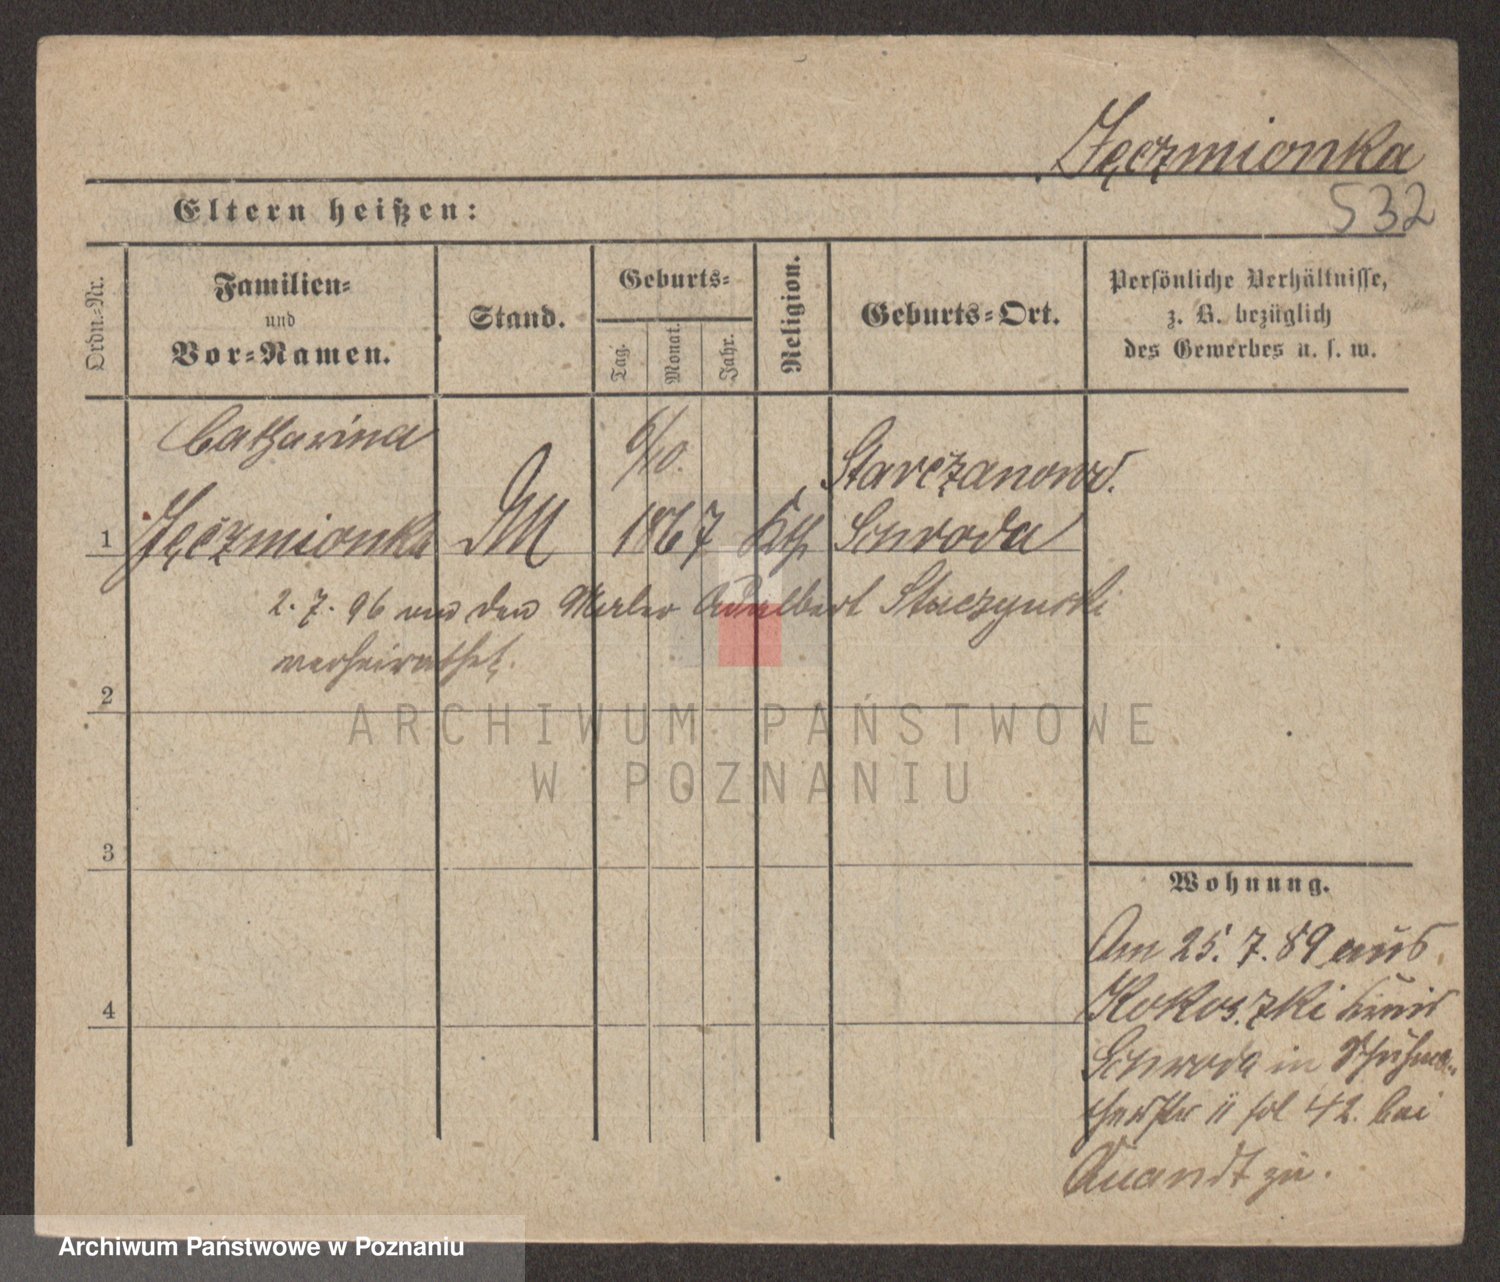 Jęczmionka
532
Eltern heißen:
Ordn.-Nr.
Familien-
und
Vor-Namen.
Stand.
Geburts-
Tag.
Monat.
Jahr.
Religion.
Geburts-Ort.
Persönliche Verhältnisse,
z. B. bezüglich
des Gewerbes u. s. w.
Catharina
6/10.
Starczanowo.
1
Jęczmionka
1867
Kth
Schroda
2. 7. 96 an den Maler Adalbert Staczynski
verheirathet.
2
3
4
Wohnung.
Am 25. 7. 89 aus
Kokoszki
Schroda in Schuhma-
cherstr 11 bei
Quandt zu.
ARCHIWUM PAŃSTWOWE
W POZNANIU
Archiwum Państwowe w Poznaniu